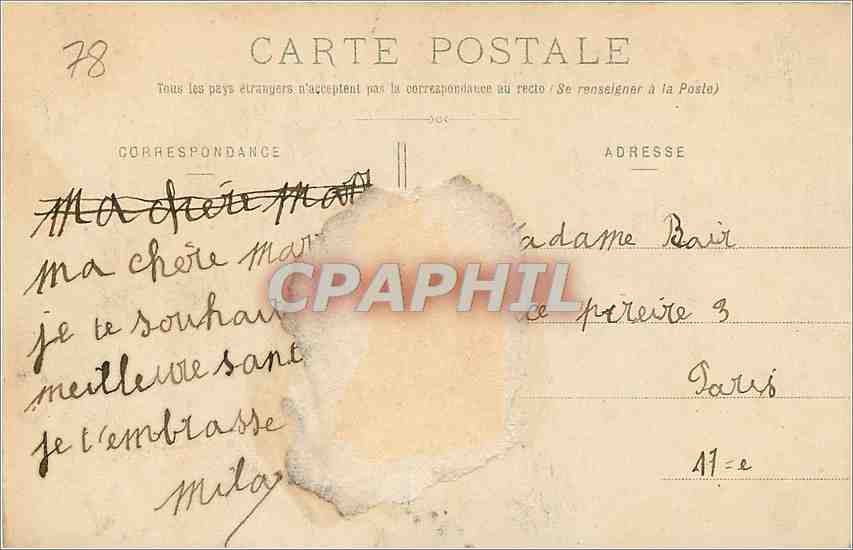 78
CARTE POSTALE
Tous les pays étrangers n'acceptent pas la correspondance au recto (Se renseigner à la Poste)
CORRESPONDANCE
ADRESSE
Ma chère mar
ma chère mar
je te souhait
meilleure sant
je t'embrasse
mila
CPAPHIL
adame Bair
ce pireire 3
Paris
17=e